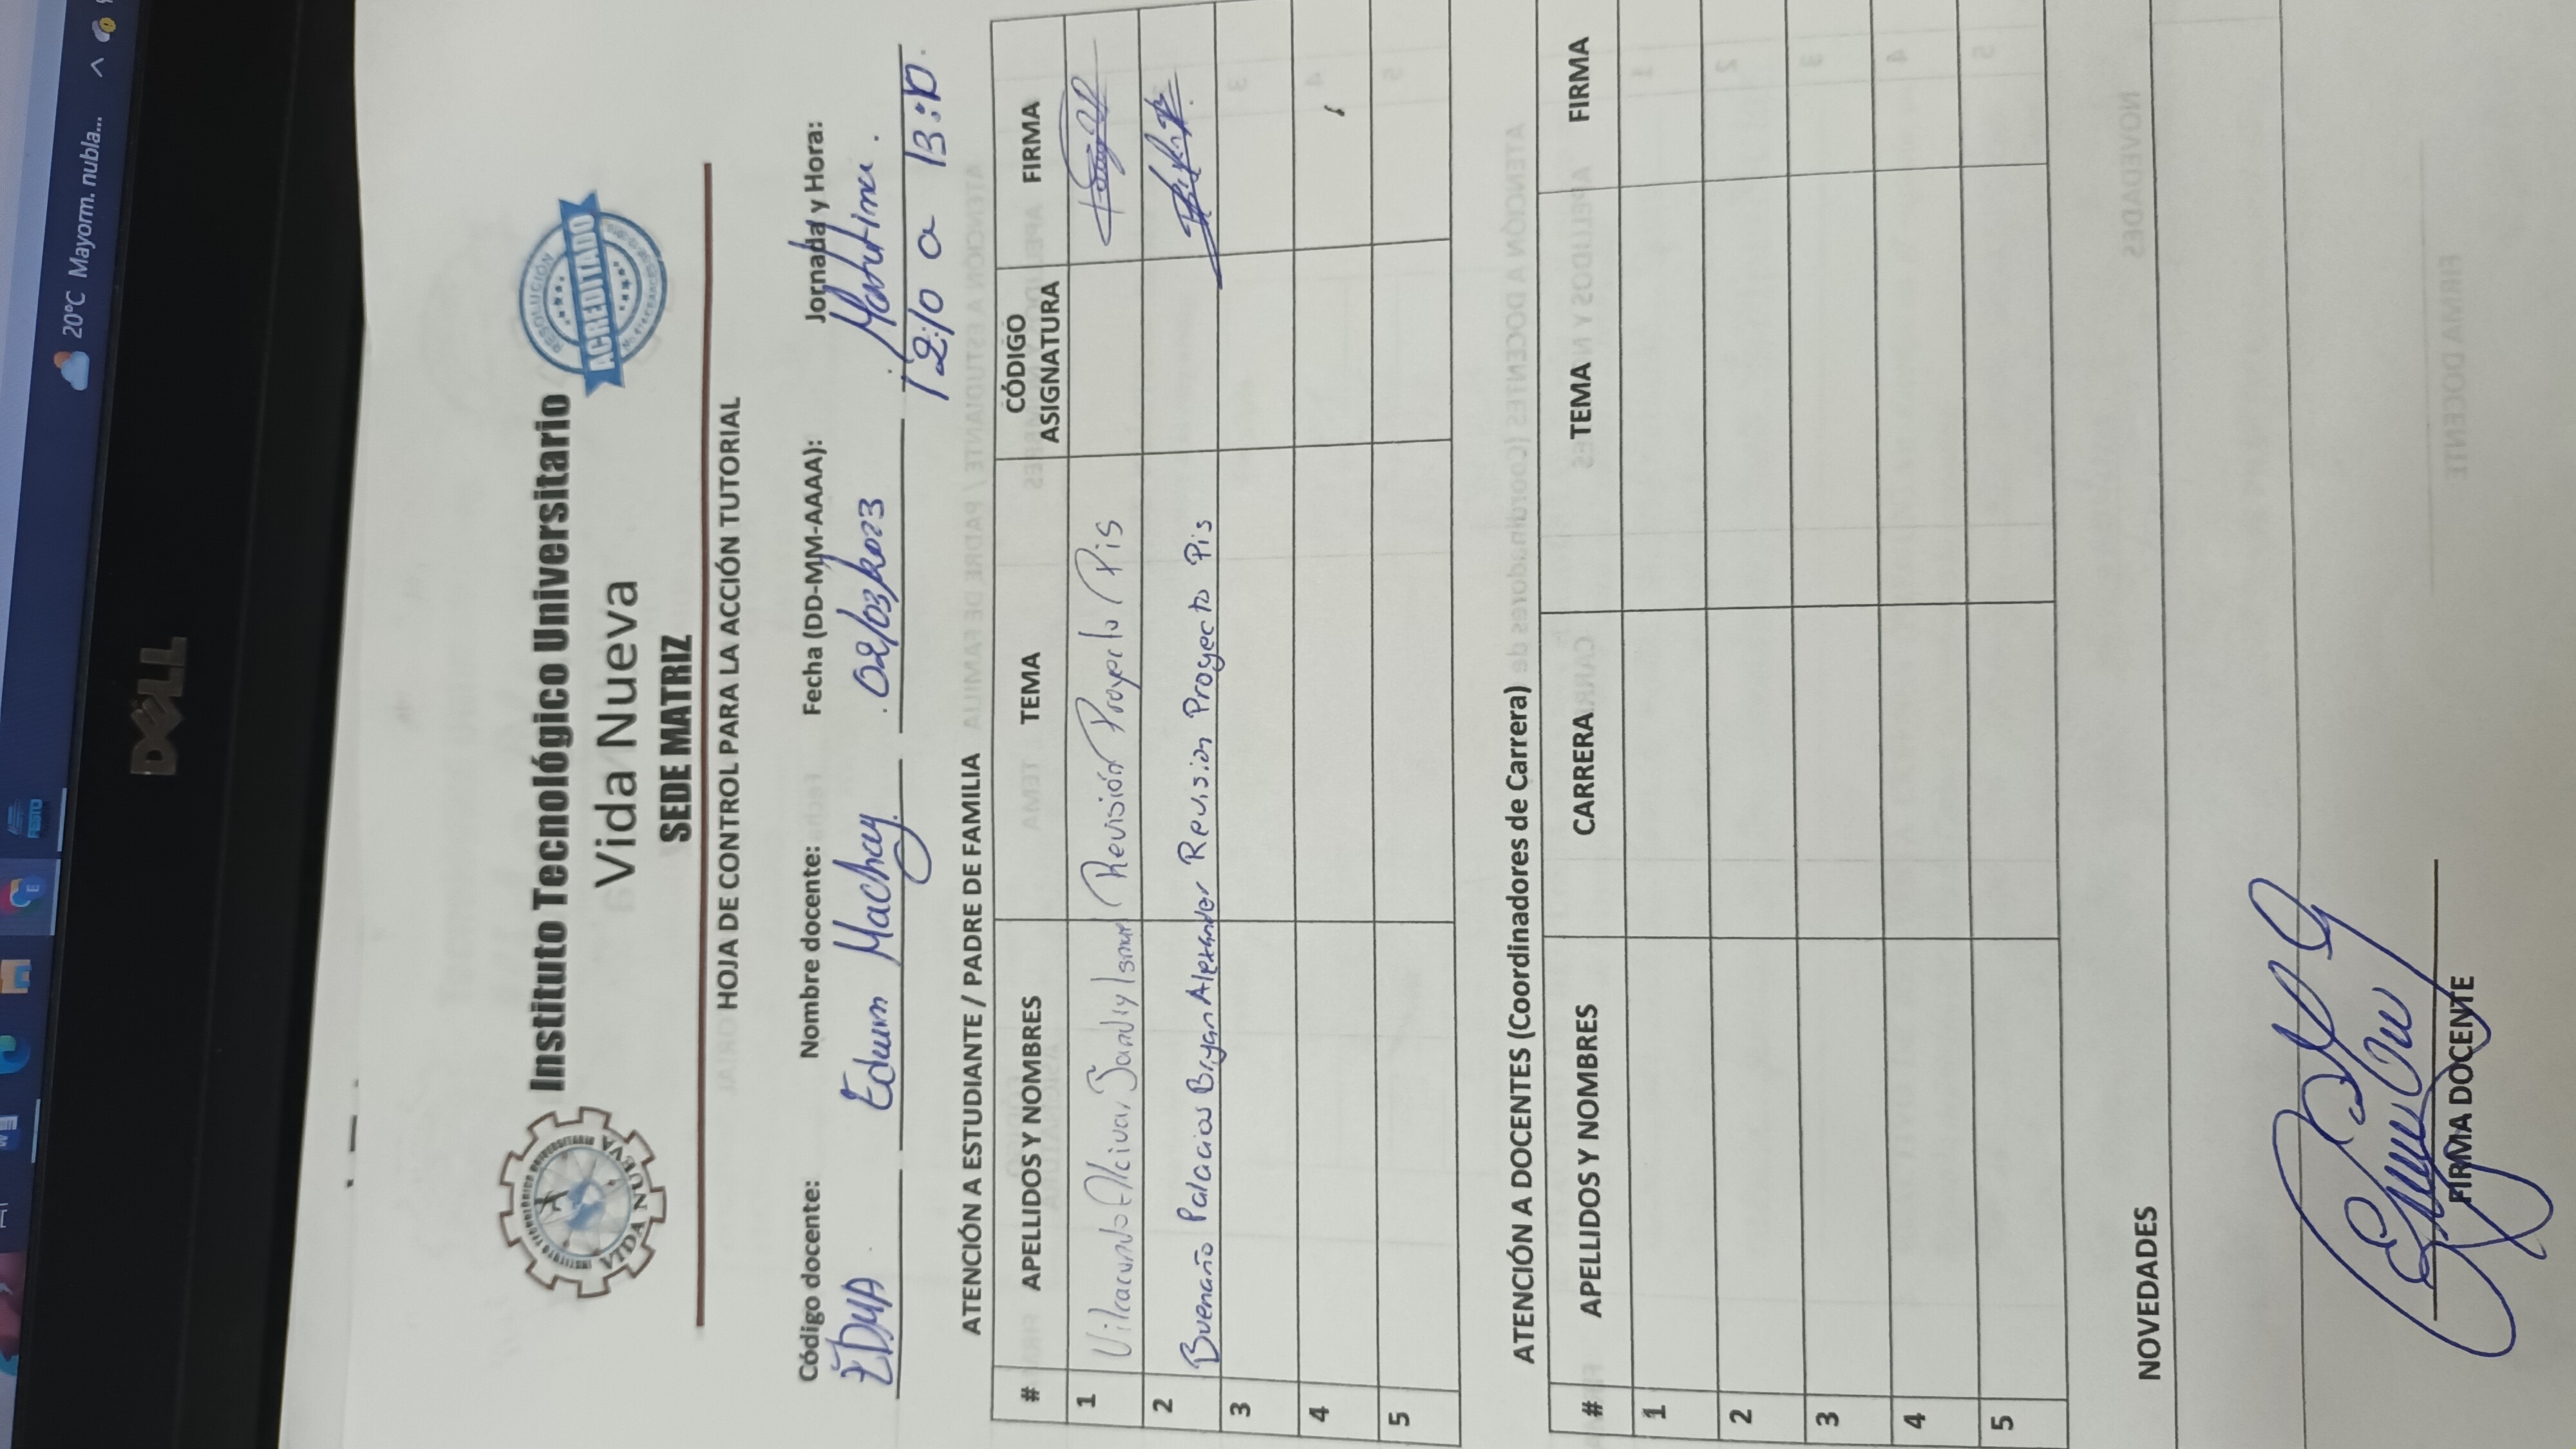 20°C Mayorm. nubla...
FESTO
DELL
INSTITUTO TECNOLÓGICO UNIVERSITARIO
VIDA NUEVA
Instituto Tecnológico Universitario
Vida Nueva
SEDE MATRIZ
RESOLUCIÓN
ACREDITADO
HOJA DE CONTROL PARA LA ACCIÓN TUTORIAL
Código docente: Nombre docente: Fecha (DD-MM-AAAA): Jornada y Hora:
EDMA Edwin Machay 02/03/2023 Matutina.
12:10 a 13:10
ATENCIÓN A ESTUDIANTE / PADRE DE FAMILIA
# APELLIDOS Y NOMBRES TEMA CÓDIGO ASIGNATURA FIRMA
1 Vilcacundo Alcivar Jandry Ismael Revisión Proyecto Pis
2 Buenaño Palacios Bryan Alexander Revision Proyecto Pis
3
4
5
ATENCIÓN A DOCENTES (Coordinadores de Carrera)
# APELLIDOS Y NOMBRES CARRERA TEMA FIRMA
1
2
3
4
5
NOVEDADES
FIRMA DOCENTE